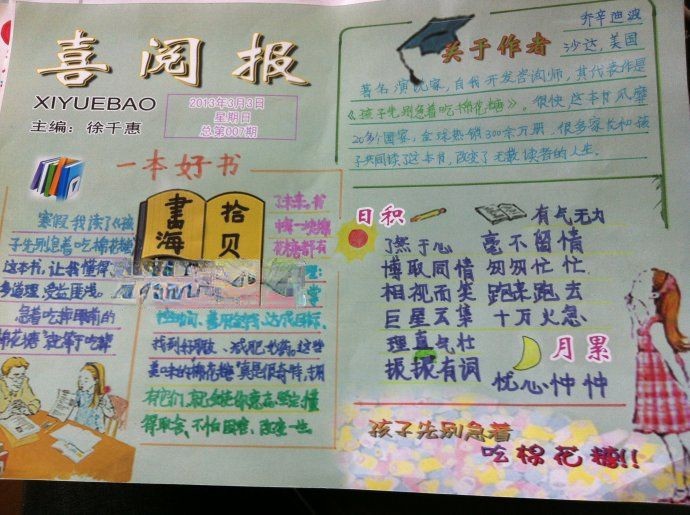 喜阅报
XIYUEBAO
主编：徐千惠
2013年3月3日
星期日
总第007期
关于作者
乔辛迪波
沙达，美国
著名演说家，自我开发咨询师，其代表作是
《孩子先别急着吃棉花糖》。很快这本书风靡
20多个国家，全球热销300余万册。很多家长和孩
子共同读了这本书，改变了无数读者的人生。
一本好书
書海
拾贝
寒假我读了《孩
子先别急着吃棉花糖》
这本书，让我懂得
多道理，受益匪浅。
急着吃掉眼前的
棉花糖”就等于吃掉
了未来。书
中每一块棉
花糖都有
找到好朋友、减肥
美味的棉花糖”真是很奇特，拥
有它们，
得取舍、不怕困难、改变一生
日积
月累
有气无力
了然于心 毫不留情
博取同情 匆匆忙忙
相视而笑 跑来跑去
巨星云集 十万火急
理直气壮
振振有词
忧心忡忡
孩子先别急着
吃棉花糖!!